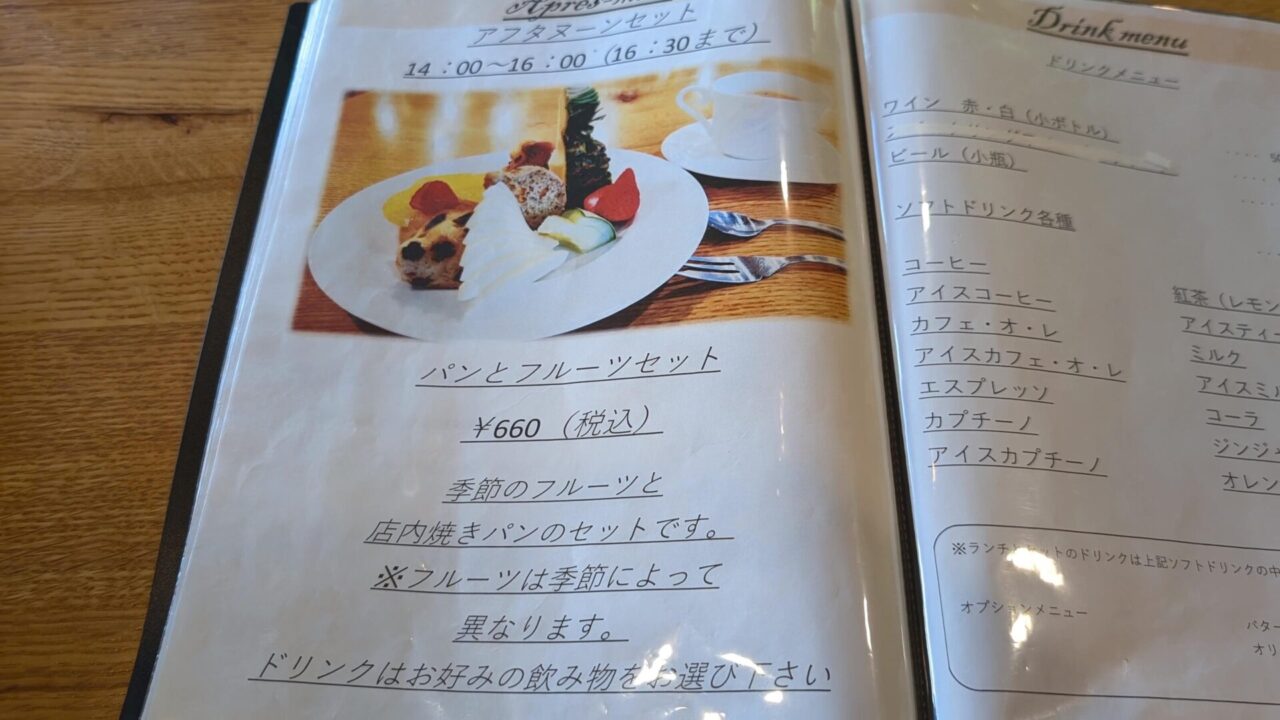 アフタヌーンセット
14：00～16：00（16：30まで）
パンとフルーツセット
￥660（税込）
季節のフルーツと
店内焼きパンのセットです。
※フルーツは季節によって
異なります。
ドリンクはお好みの飲み物をお選び下さい
Drink menu
ドリンクメニュー
ワイン　赤・白（小ボトル）
ビール（小瓶）
ソフトドリンク各種
コーヒー
アイスコーヒー
カフェ・オ・レ
アイスカフェ・オ・レ
エスプレッソ
カプチーノ
アイスカプチーノ
紅茶（レモン
アイスティー
ミルク
アイスミ
コーラ
ジンジ
オレン
※ランチ ットのドリンクは上記ソフトドリンクの中
オプションメニュー
バター
オリ